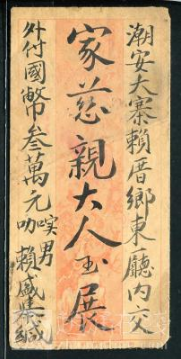 潮安大寨賴厝鄉東廳内交
家慈親大人玉展
外付國幣叁萬元
叻 男 賴
緘